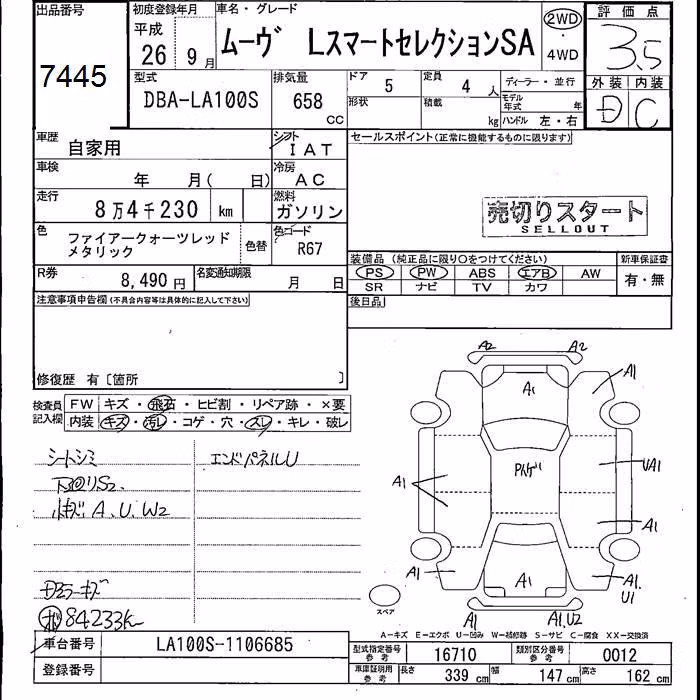 出品番号
7445
初度登録年月
平成
26 9 月
車名・グレード
ムーヴ LスマートセレクションSA
2WD
・
4WD
評価点
3.5
外装 内装
D C
型式
DBA-LA100S
排気量
658
CC
ドア
5
定員
4 人
形状
積載
kg
ディーラー・並行
モデル年式 年
ハンドル 左・右
車歴
自家用
シフト
IAT
車検
年 月( 日)
冷房
AC
走行
8万4千230 km
燃料
ガソリン
色
ファイアークォーツレッド
メタリック
色替
色コード
R67
R券
8,490 円
名変通知期限
月 日
セールスポイント(正常に機能するものに限ります)
売切りスタート
SELLOUT
装備品(純正品に限り〇をつけてください)
新車保証書
PS PW ABS エアB AW
SR ナビ TV カワ
有・無
後日品
注意事項申告欄(不具合内容等は具体的に記入して下さい)
修復歴 有〔箇所 〕
検査員
記入欄
FW キズ・飛石・ヒビ割・リペア跡・×要
内装 キズ・汚レ・コゲ・穴・スレ・キレ・破レ
シートシミ
エンドパネルU
下廻りS2.
A、U、W2
Dミラーキズ
84233K
車台番号
LA100S-1106685
登録番号
A2 A2
A1
A1
A1
UA1
A1
A1
A1
A1
A1.
U1
A1
A1,U2
スペア
A-キズ E-エクボ U-凹み W-補修跡 S-サビ C-腐食 XX-交換済
型式指定番号
参考
16710
類別区分番号
参考
0012
車庫証明用
参考
長さ 339 cm 幅 147 cm 高さ 162 cm